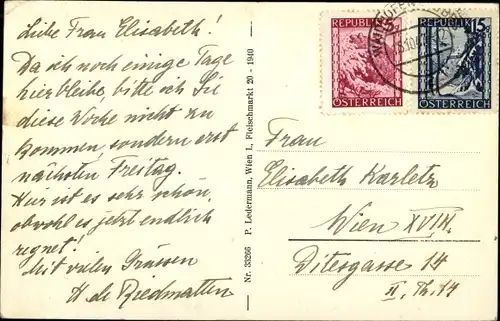 Liebe Frau Elisabeth!
Da ich noch einige Tage
hierbleibe, bitte ich Sie
diese Woche nicht zu
kommen, sondern erst
nächsten Freitag.
Hier ist es sehr schön,
obwohl es jetzt endlich
regnet!
Mit vielen Grüssen
H. de Riedmatten
Nr. 33266 P. Ledermann, Wien I., Fleischmarkt 20 - 1940
REPUBLIK
ÖSTERREICH
REPUBLIK 15
ÖSTERREICH
Frau
Elisabeth Karletz
Wien XVIII.
Ditesgasse 14
II, Th. 14